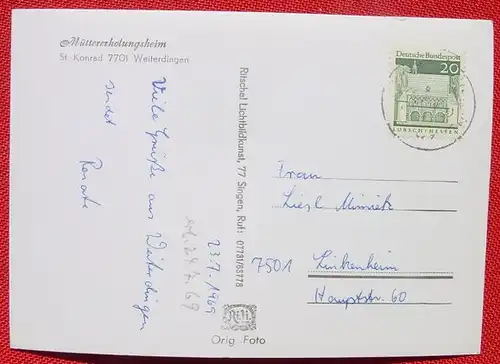 Müttererholungsheim
St. Konrad 7701 Weiterdingen
Viele Grüße aus Weiterdingen
sendet
Renate
23.7.1969
erh. 24.7.69
Ritschel Lichtbildkunst, 77 Singen, Ruf: 07731/63778
Orig. Foto
Deutsche Bundespost
20
LORSCH/HESSEN
Frau
Liesl
7501 Linkenheim
Hauptstr. 60